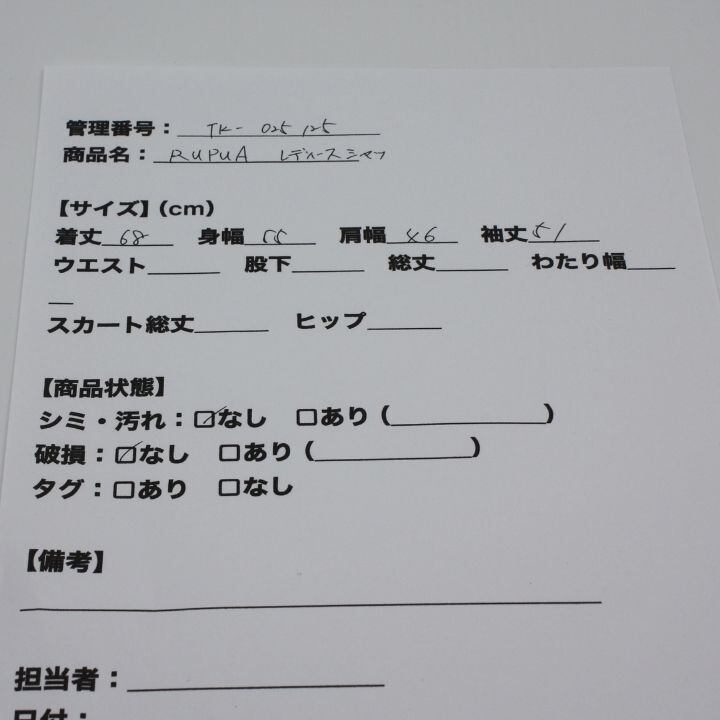 管理番号：TK-025125
商品名：RUPUA レディースシャツ
【サイズ】(cm)
着丈 68 身幅 55 肩幅 46 袖丈 51
ウエスト______ 股下______ 総丈______ わたり幅____
__
スカート総丈______ ヒップ______
【商品状態】
シミ・汚れ：☑なし □あり (____________)
破損：☑なし □あり (____________)
タグ：□あり □なし
【備考】
担当者：____________________
日付：